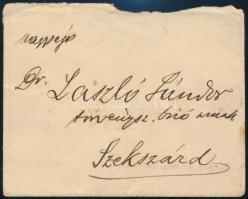 nagysgú
Dr. László Sándor
törvénysz. biró urnak
Szekszárd